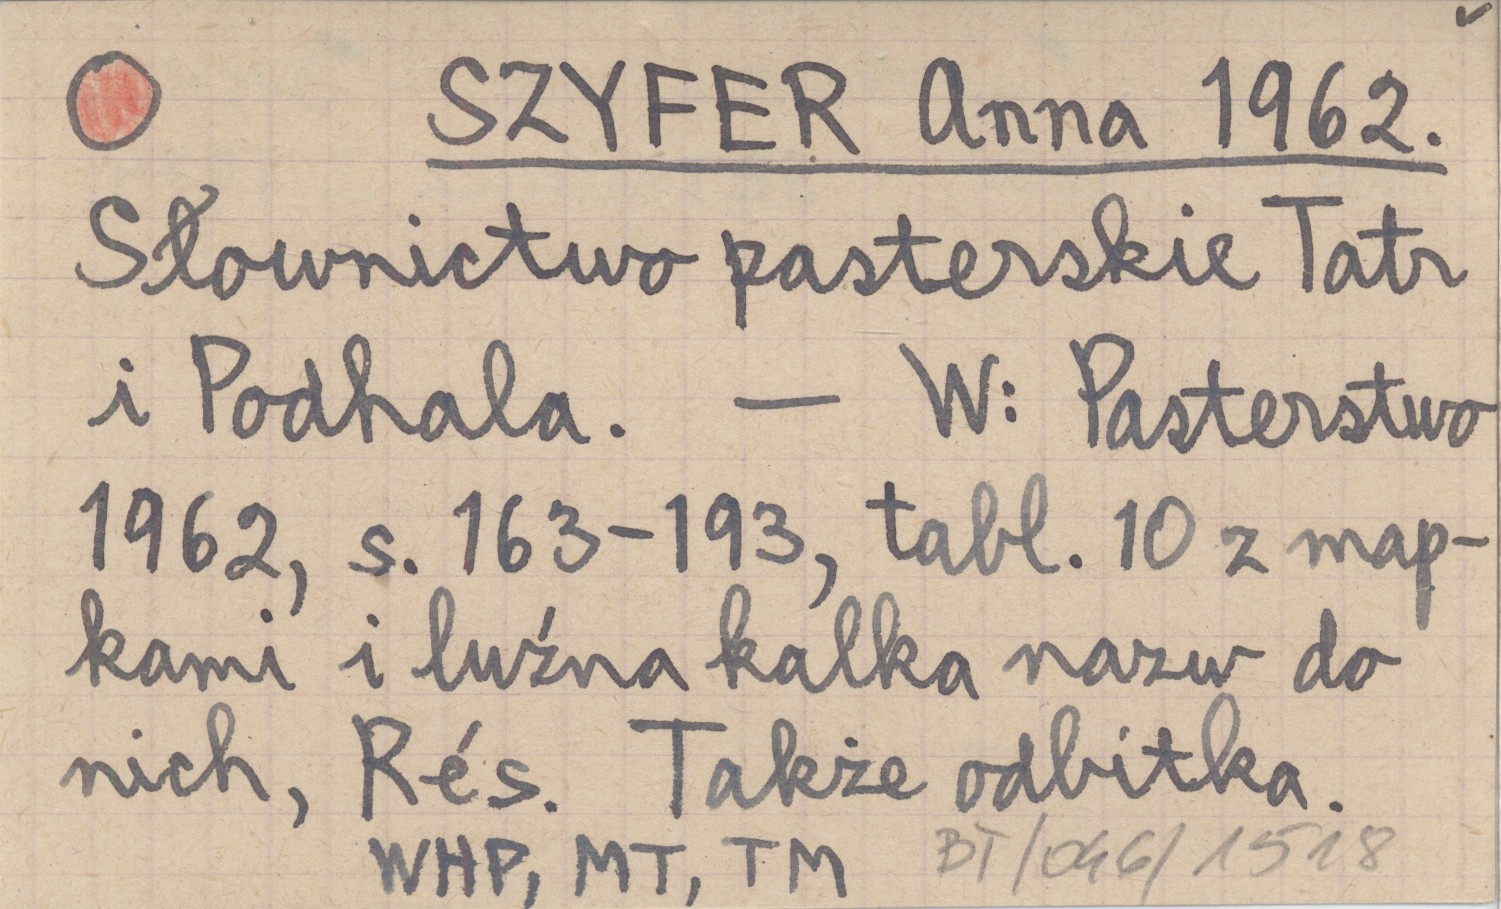 SZYFER Anna 1962.
Słownictwo pasterskie Tatr
i Podhala. — W: Pasterstwo
1962, s. 163-193, tabl. 10 z map-
kami i luźna kalka nazw do
nich, Rés. Także odbitka.
WHP, MT, TM BT/046/1518